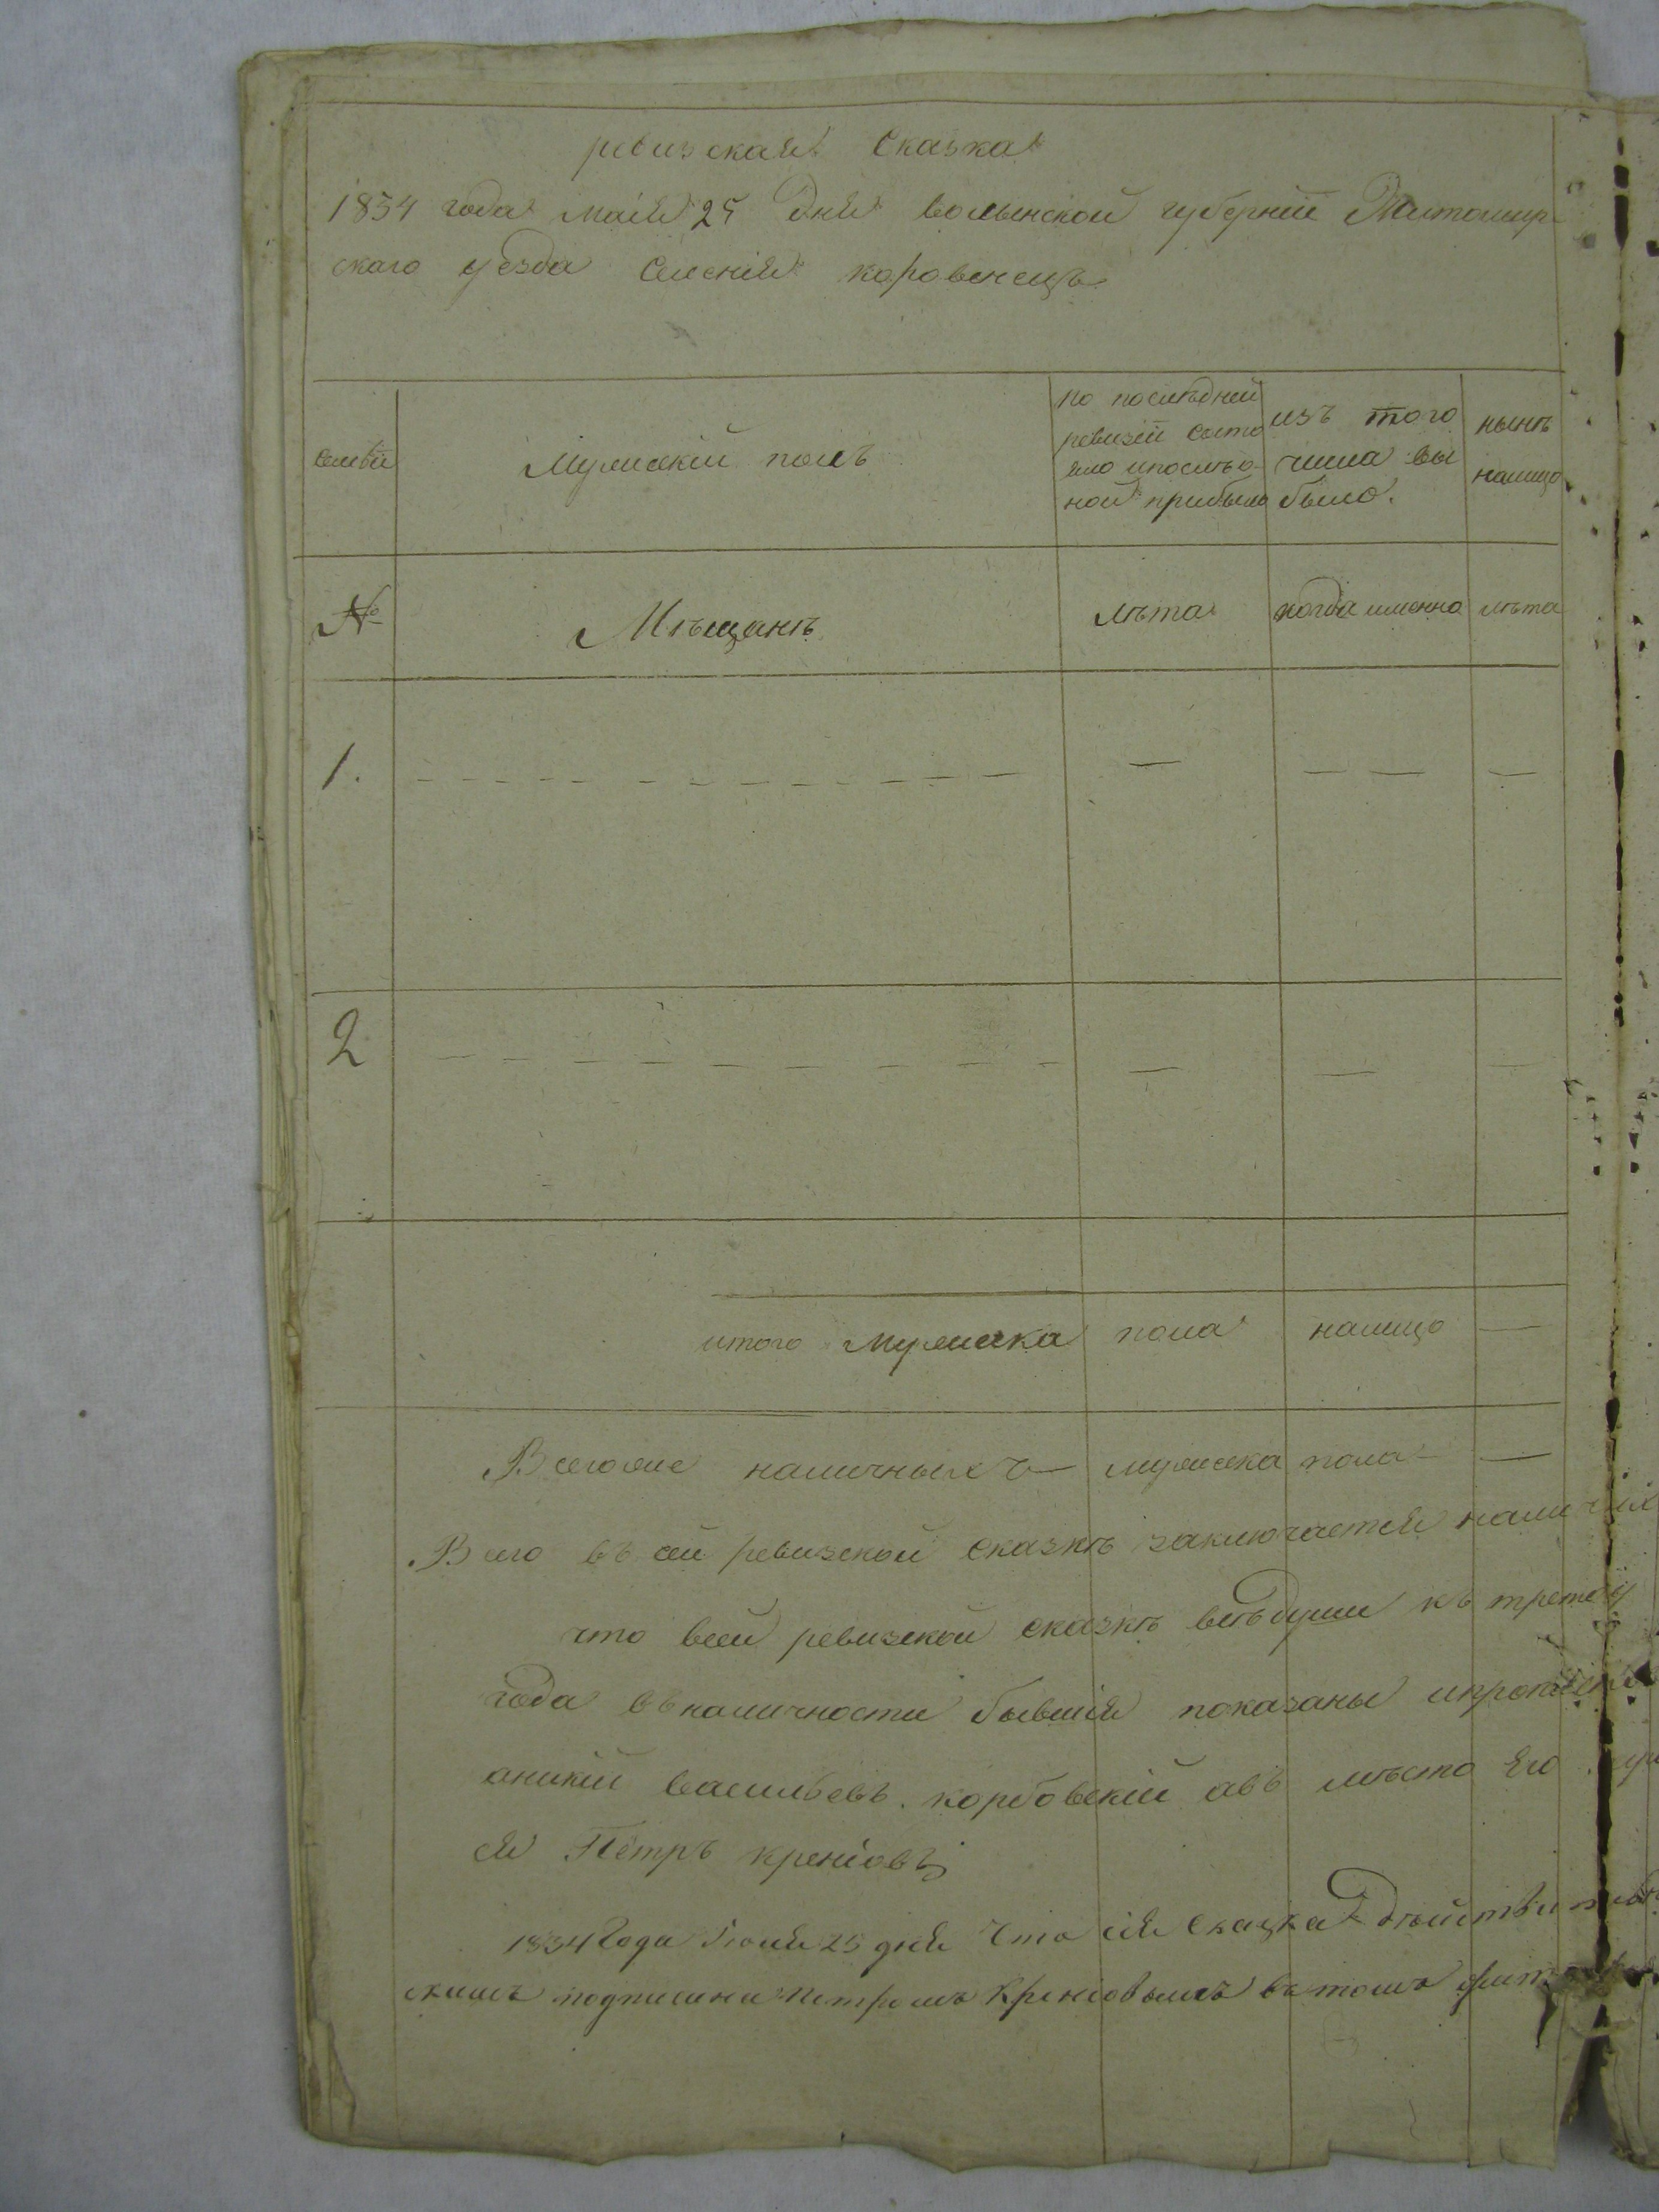 ревизская Сказка
1834 года маія 25 Дня волынской губерніи Житомир
скаго уезда Селенія коровенецъ
Семьи
Мужескій полъ
по последней
ревизіи состо
яло и после о
ной прибыло
изъ того
числа вы
было.
нынѣ
налицо
№
Мѣщанѣ
лѣта
когда именно
лѣта
1. — — — —
2 — — — —
итого мужеска пола налицо —
Всего же наличныхъ — мужеска пола —
Всего въ сей ревизской сказкѣ заключается
что всей ревизской сказкѣ всѣ души къ
года въ наличности бывшія показаны
васильевъ корбовскій а въ мѣсто Его
ся Петръ креніовъ
1834 Года 25 дня Что сія Сказка
подписана Петромъ Креніовымъ въ томъ